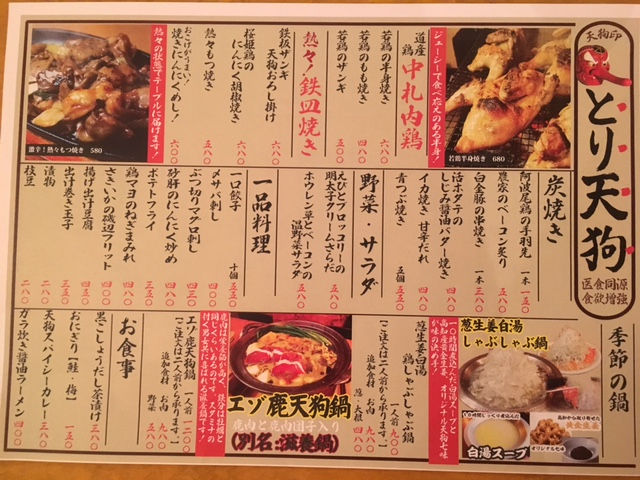 天狗印
とり天狗
医食同源
食欲増強
ジューシーで食べ応えのある半身!
若鶏半身焼き 680
道産鶏 中札内鶏
若鶏の半身焼き 六八〇
若鶏のもも焼き
若鶏のザンギ 五五〇
熱々!鉄皿焼き
鉄板ザンギ
天狗おろし掛け 六〇〇
桜姫鶏の
にんにく胡椒焼き 六八〇
熱々もつ焼き 五八〇
おこげがうまい!
焼きにんにくめし! 六〇〇
熱々の状態でテーブルに届けます!
激辛!熱々もつ焼き 580
炭焼き
阿波尾鶏の手羽先 一本 一五〇
農家のベーコン炙り 五八〇
白金豚の串焼き 一本 三八〇
活ホタテの
しじみ醤油バター焼き
イカ焼き 甘辛だれ
青つぶ焼き 五個 五五〇
野菜・サラダ
えびとブロッコリーの
明太子クリームさらだ 五八〇
ホウレン草とベーコンの
温野菜サラダ
一品料理
一口餃子 十個 五五〇
メサバ刺し
ぶつ切りマグロ刺し
砂肝のにんにく炒め
ポテトフライ
鶏マヨのねぎまみれ
さきいかの磯辺フリット
揚げ出汁豆腐
出汁巻き玉子
漬物
枝豆 二八〇
季節の鍋
葱生姜白湯
しゃぶしゃぶ鍋
一〇時間煮込んだ白湯スープと
高知産黄金生姜、オリジナル天狗七味
が味の決め手!
白湯スープ
オリジナル七味
黄金生姜
葱生姜白湯
鶏しゃぶ鍋 一人前 九〇〇
(ご注文は二人前から承ります)
追加食材 お肉
葱・大根
エゾ鹿天狗鍋
鹿肉と鹿肉団子入り
(別名:滋養鍋)
エゾ鹿天狗鍋 一人前 一二〇〇
(ご注文は二人前から承ります)
追加食材 お肉 九八〇
野菜
お食事
黒こしょうだし茶漬け
おにぎり[鮭・梅]
天狗スパイシーカレー
ガラ炊き醤油ラーメン 六〇〇